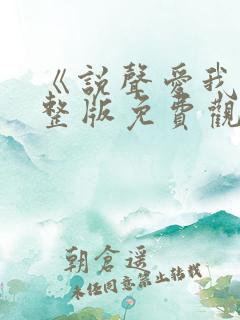 《說聲愛我
整版免費觀
朝倉遥
未经同意禁止转载